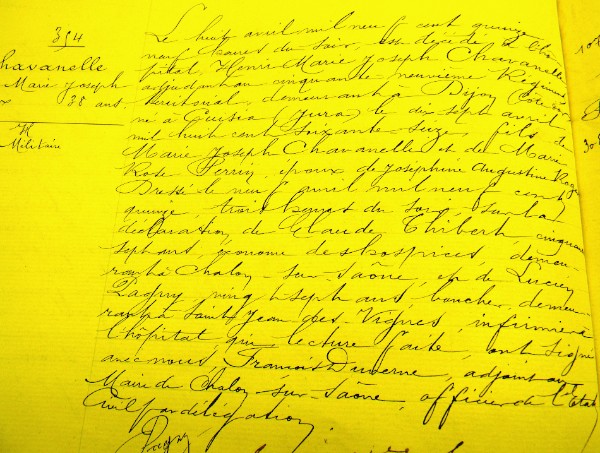 354
Chavanelle
Marie Joseph
38 ans
H
Militaire
Le huit avril mil neuf cent quinze
neuf heures du soir, est décédé à l'hô
pital, Henri Marie Joseph Chavanelle
adjudant au cinquante neuvième Régiment
territorial, demeurant à Dijon (Côte
né à Cuisia (Jura) le dix sept avril
mil huit cent soixante seize, fils de
Marie Joseph Chavanelle et de Marie
Rose Perrin, époux de Joséphine Augustine Roger
Dressé le neuf avril mil neuf cent
quinze, trois heures du soir, sur la
déclaration de Claude Thibert, cinquante
sept ans, économe des hospices, demeu-
rant à Chalon-sur-Saône, et de Lucien
Pagny, vingt sept ans, boucher, demeu-
rant à Saint Jean des Vignes, infirmier à
l'hôpital, qui, lecture faite, ont signé
avec nous, François Duverne, adjoint au
Maire de Chalon-sur-Saône, officier de l'Etat
Civil par délégation.
Pagny